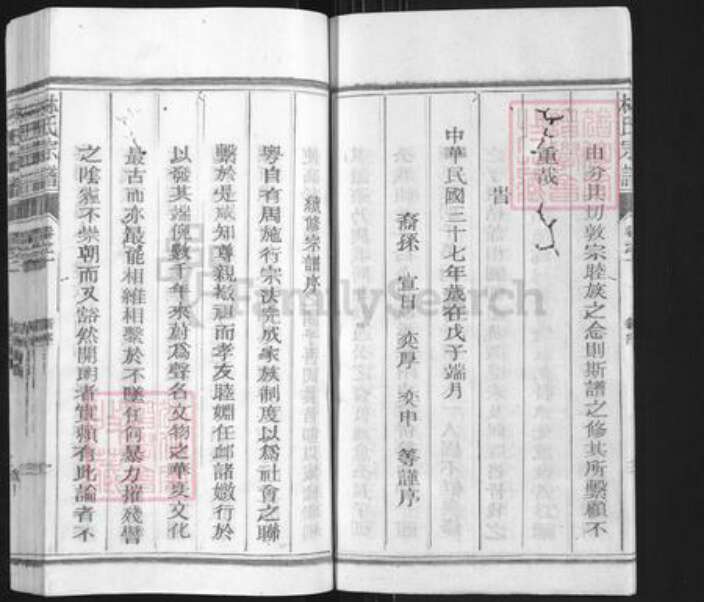 由分其切敦宗睦族之念則斯譜之修其所繫顧不
重哉
旹
中華民國三十七年歲在戊子端月
裔孫 宣日 奕厚 奕申 等謹序
續修宗譜序
粵自有周施行宗法完成家族制度以為社會之聯
繫於是咸知尊親敬祖而孝友睦婣任卹諸媺行於
以發其端倪數千年來蔚為聲名文物之華夏文化
最古而亦最能相維相繫於不墜任何暴力摧殘譬
之陰霾不崇朝而又豁然開朗者實賴有此論者不
林氏宗譜
FamilySearch